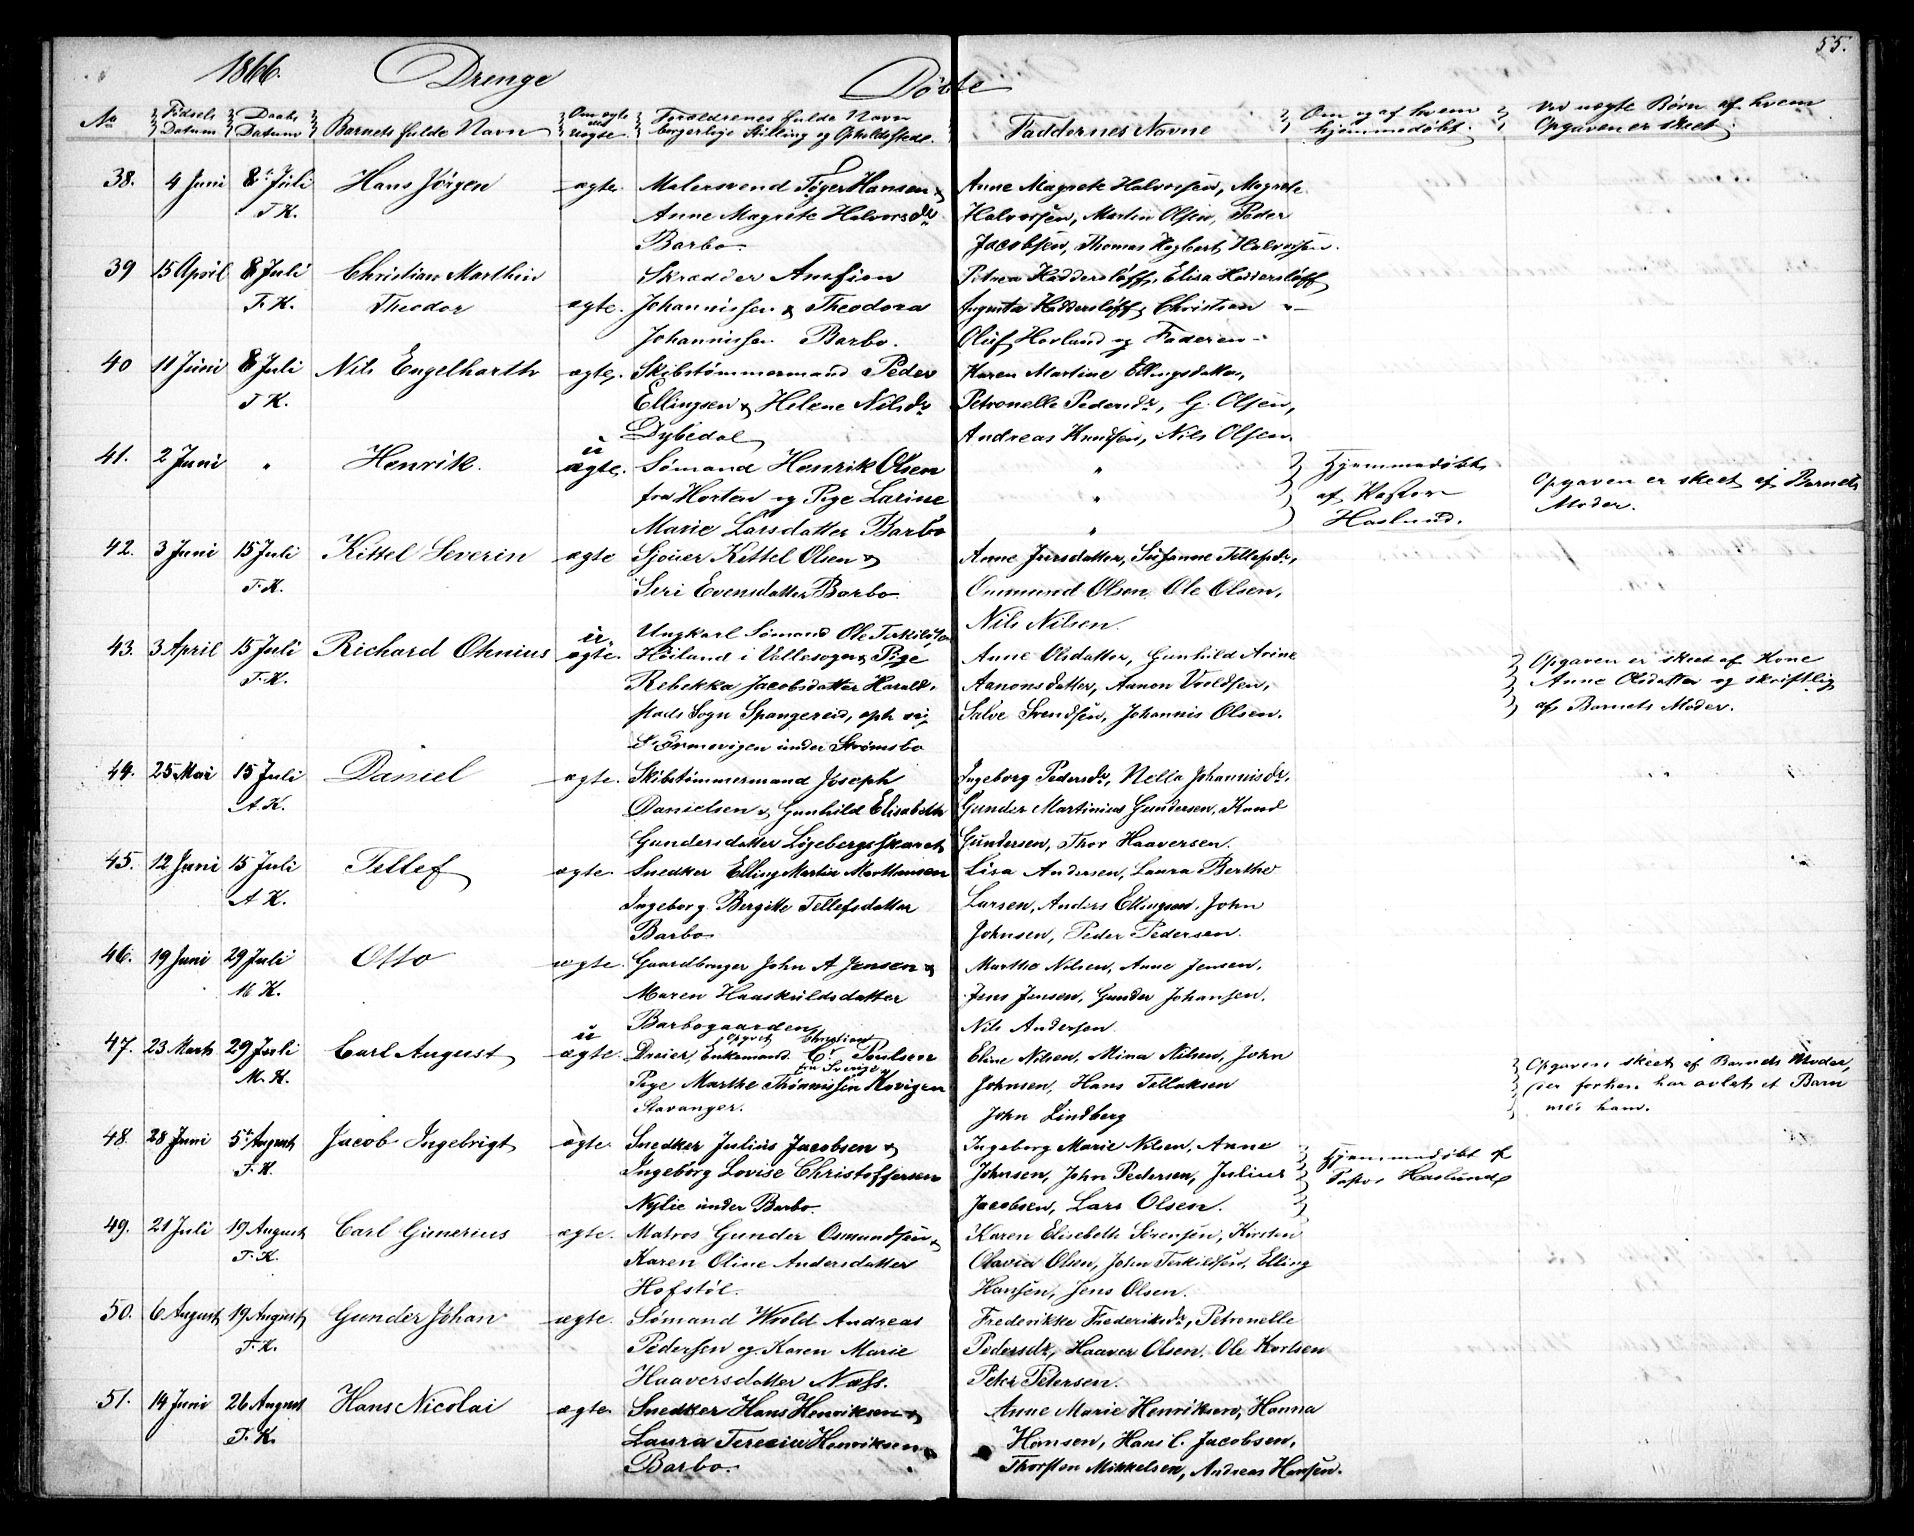 55.
1866. Drenge Døbte
No Fødsels Datum Daabs Datum Barnets fulde Navn Om ægte eller uægte. Forældrenes fulde Navn borgerlige Stilling og Opholdssted. Faddernes Navne Om og af hvem hjemmedøbt. Ved uægte Børn af hvem Opgaven er skeet
38. 4 Juni 8de Juli Hans Jørgen ægte. Malersvend Tøger Hansen & Anne Magrete Halvorsen, Magrete
T. K. Anne Magrete Halvorsdr Halvorsen, Martin Olsen, Peder
Barbo. Jacobsen, Thomas Hegbart Halvorsen.
39 15 April 8 Juli Christian Marthin Skrædder Amfien Petrea Haddersløff, Elisa Haddersløff
T. K. Theodor ægte. Johannissen & Theodora Augusta Haddersløff, Christian
Johannissen Barbo. Oluf Hovland og Faderen
40 11 Juni 8 Juli Nils Engelharth ægte. Skibstømmermand Peder Karen Martine Ellingsdatter,
T K. Ellingsen & Helene Nilsdr Petronelle Pedersdr, G. Olsen,
Dybedal Andreas Knudsen, Nils Olsen.
41. 2 Juni " Henrik. uægte. Sømand Henrik Olsen " Hjemmedøbt
fra Horten og Pige Larine " af Pastor Opgaven er skeet af Barnets
Marie Larsdatter Barbo " Haslund. Moder.
42. 3 Juni 15 Juli Kittel Severin ægte Sjouer Kittel Olsen & Anne Jursdatter, Susanne Tellefsdr,
T. K. Seri Evensdatter Barbo Gunmund Olsen, Ole Olsen,
Nils Nilsen.
Ungkarl Sømand Ole Terkildsen
43. 3 April 15 Juli Richard Othnius uægte. Høiland i Vallesogn & Pige Anne Olsdatter, Gunhild Arine Opgaven er skeet af Kone
T. K. Rebekka Jacobsdatter Harald- Aanonsdatter, Aanon Voldsen, Anne Olsdatter og skriftlig
stads Sogn Spangereid, oph sig Salve Svendsen, Johannis Olsen. af Barnets Moder.
under Strømsbo
44. 25 Mai 15 Juli Daniel ægte. Skibstømmermand Joseph Ingeborg Pedersdr, Nella Johannisdr,
A. K. Danielsen & Gunhild Elisabeth Gunder Martinius Gundersen, Knud
Gundersdatter Løgebergsskaret Gundersen, Thor Haaversen.
45. 12 Juni 15 Juli Tellef ægte. Snedker Elling Martin Marthinsen Lisa Andersen, Laura Berthe
A K. Ingeborg Bergitte Tellefsdatter Larsen, Anders Ellingsen, John
Barbo Johnsen, Peder Pedersen.
46. 19 Juni 29 Juli Otto ægte. Gaardbruger John A Jensen & Marthe Nilsen, Anne Jensen,
M K. Maren Haaskuldsdatter Jens Jensen, Gunder Johansen,
Barbogaarden Nils Andersen
opgivt Christian
47. 23 Marts 29 Juli Carl August uægte. Dreier, Enkemand Cr Poulsen Eline Nilsen, Mina Nilsen, John Opgaven skeet af Barnets Moder,
fra Sverige
M. K. Pige Marthe Thønnissen Kovigen Johnsen, Hans Tellaksen der forhen har avlet et Barn
Stavanger. John Lindberg med ham.
48. 28 Juni 5te August Jacob Ingebrigt ægte. Snedker Julius Jacobsen & Ingeborg Marie Nilsen, Anne Hjemmedøbt af
T. K. Ingeborg Lovise Christoffersen Johnsen, John Pedersen, Julius Pastor Haslund
Nylie under Barbo. Jacobsen, Lars Olsen.
49. 21 Juli 19 August Carl Gunerius ægte. Matros Gunder Osmundsen & Karen Elisebeth Sørensen, Kirsten
T. K. Karen Oline Andersdatter Olavia Olsen, John Terkildsen, Elling
Hofstøl. Hansen, Jens Olsen.
50. 6 August 19 August Gunder Johan ægte. Sømand Wold Andreas Frederikke Frederiksdr, Petronelle
T. K. Pedersen og Karen Marie Pedersdr, Haaver Olsen, Ole Karlsen
Haaversdatter Næss. Peter Petersen.
51. 14 Juni 26 August Hans Nicolai ægte. Snedker Hans Henriksen & Anne Marie Henriksen, Hanna
T. K. Laura Teresia Henriksen Hansen, Hans C. Jacobsen,
Barbo. Thorsten Mikkelsen, Andreas Hansen.